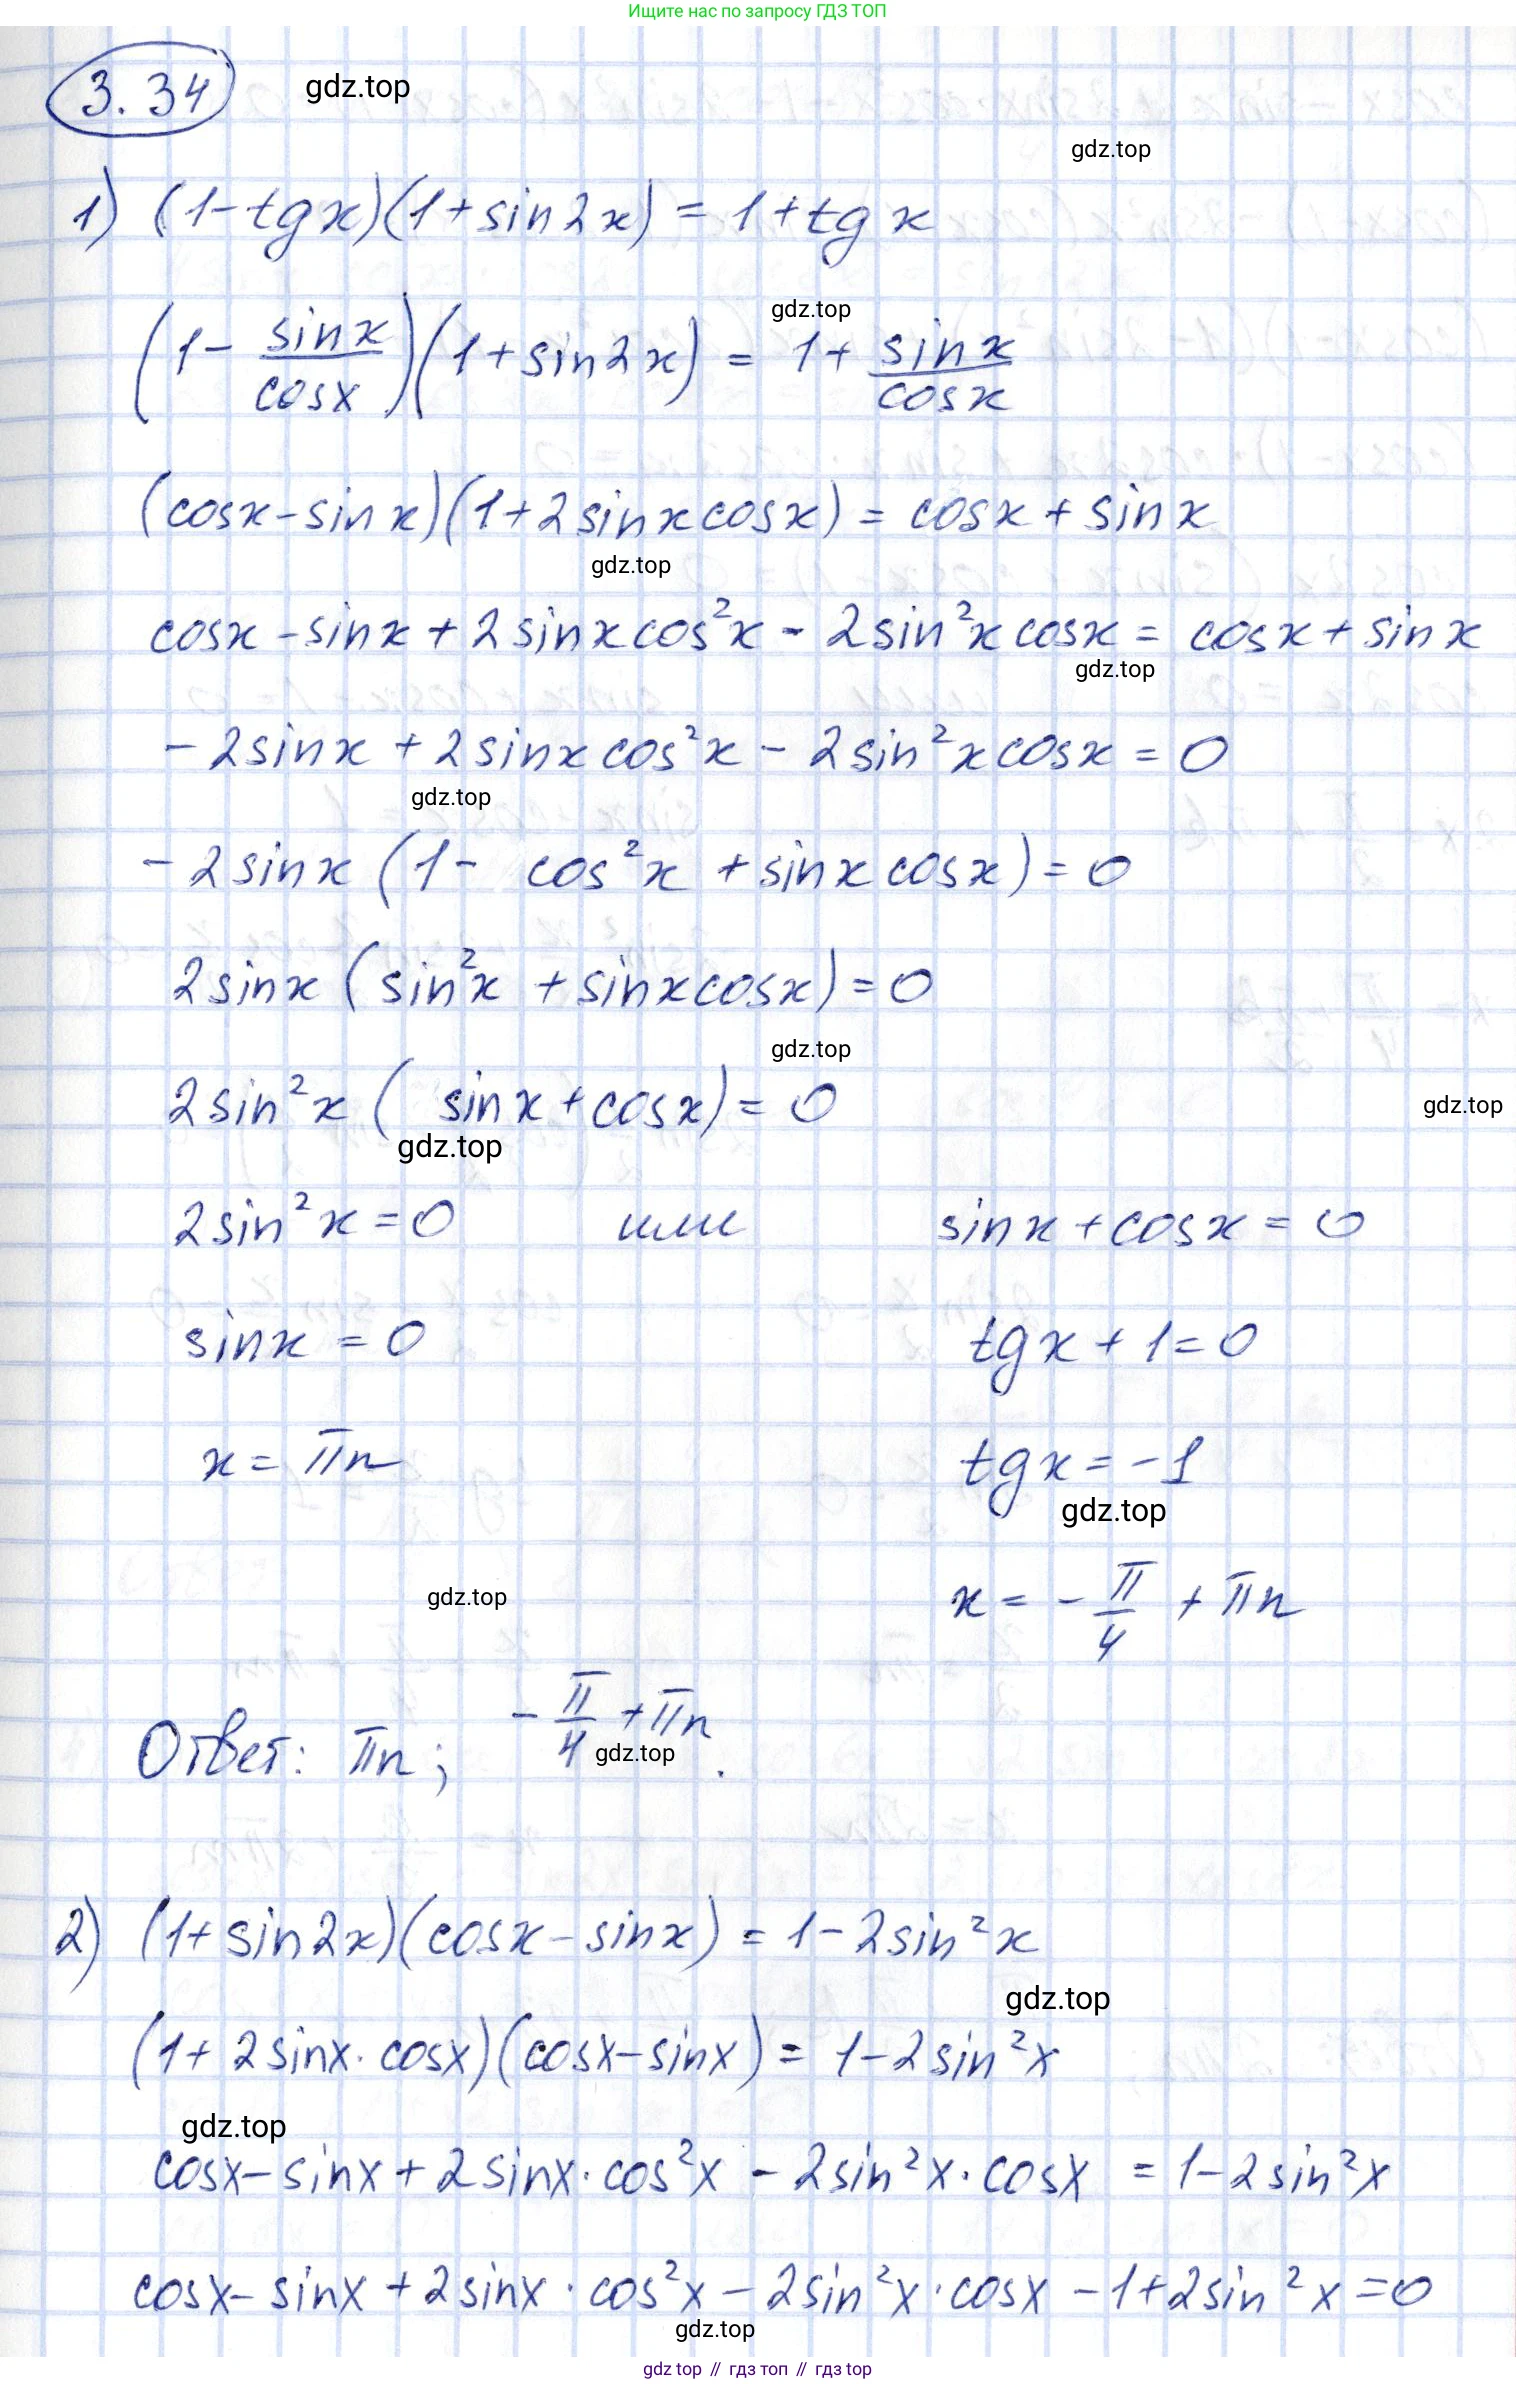 Ищите нас по запросу ГДЗ ТОП
3.34 gdz.top
gdz.top
1) (1-tgx)(1+sin2x) = 1+tgx
gdz.top
(1 - sinx/cosx)(1+sin2x) = 1 + sinx/cosx
(cosx-sinx)(1+2sinxcosx) = cosx + sinx
gdz.top
cosx -sinx + 2sinxcos²x - 2sin²x cosx = cosx + sinx
gdz.top
- 2sinx + 2sinx cos²x - 2sin²x cosx = 0
gdz.top
- 2sinx (1 - cos²x + sinx cosx) = 0
2sinx (sin²x + sinxcosx) = 0
gdz.top
2sin²x ( sinx + cosx) = 0
gdz.top
gdz.top
2sin²x = 0 или sinx + cosx = 0
sinx = 0 tgx + 1 = 0
x = πn tgx = -1
gdz.top
gdz.top
x = - π/4 + πn
Ответ: πn; - π/4 + πn.
gdz.top
2) (1+ sin2x)(cosx - sinx) = 1 - 2sin²x
gdz.top
(1+ 2sinx · cosx)(cosx-sinx) = 1-2sin²x
gdz.top
cosx - sinx + 2sinx · cos²x - 2sin²x · cosx = 1-2sin²x
cosx- sinx + 2sinx · cos²x - 2sin²x · cosx - 1+2sin²x = 0
gdz.top
gdz top // гдз топ // гдз top